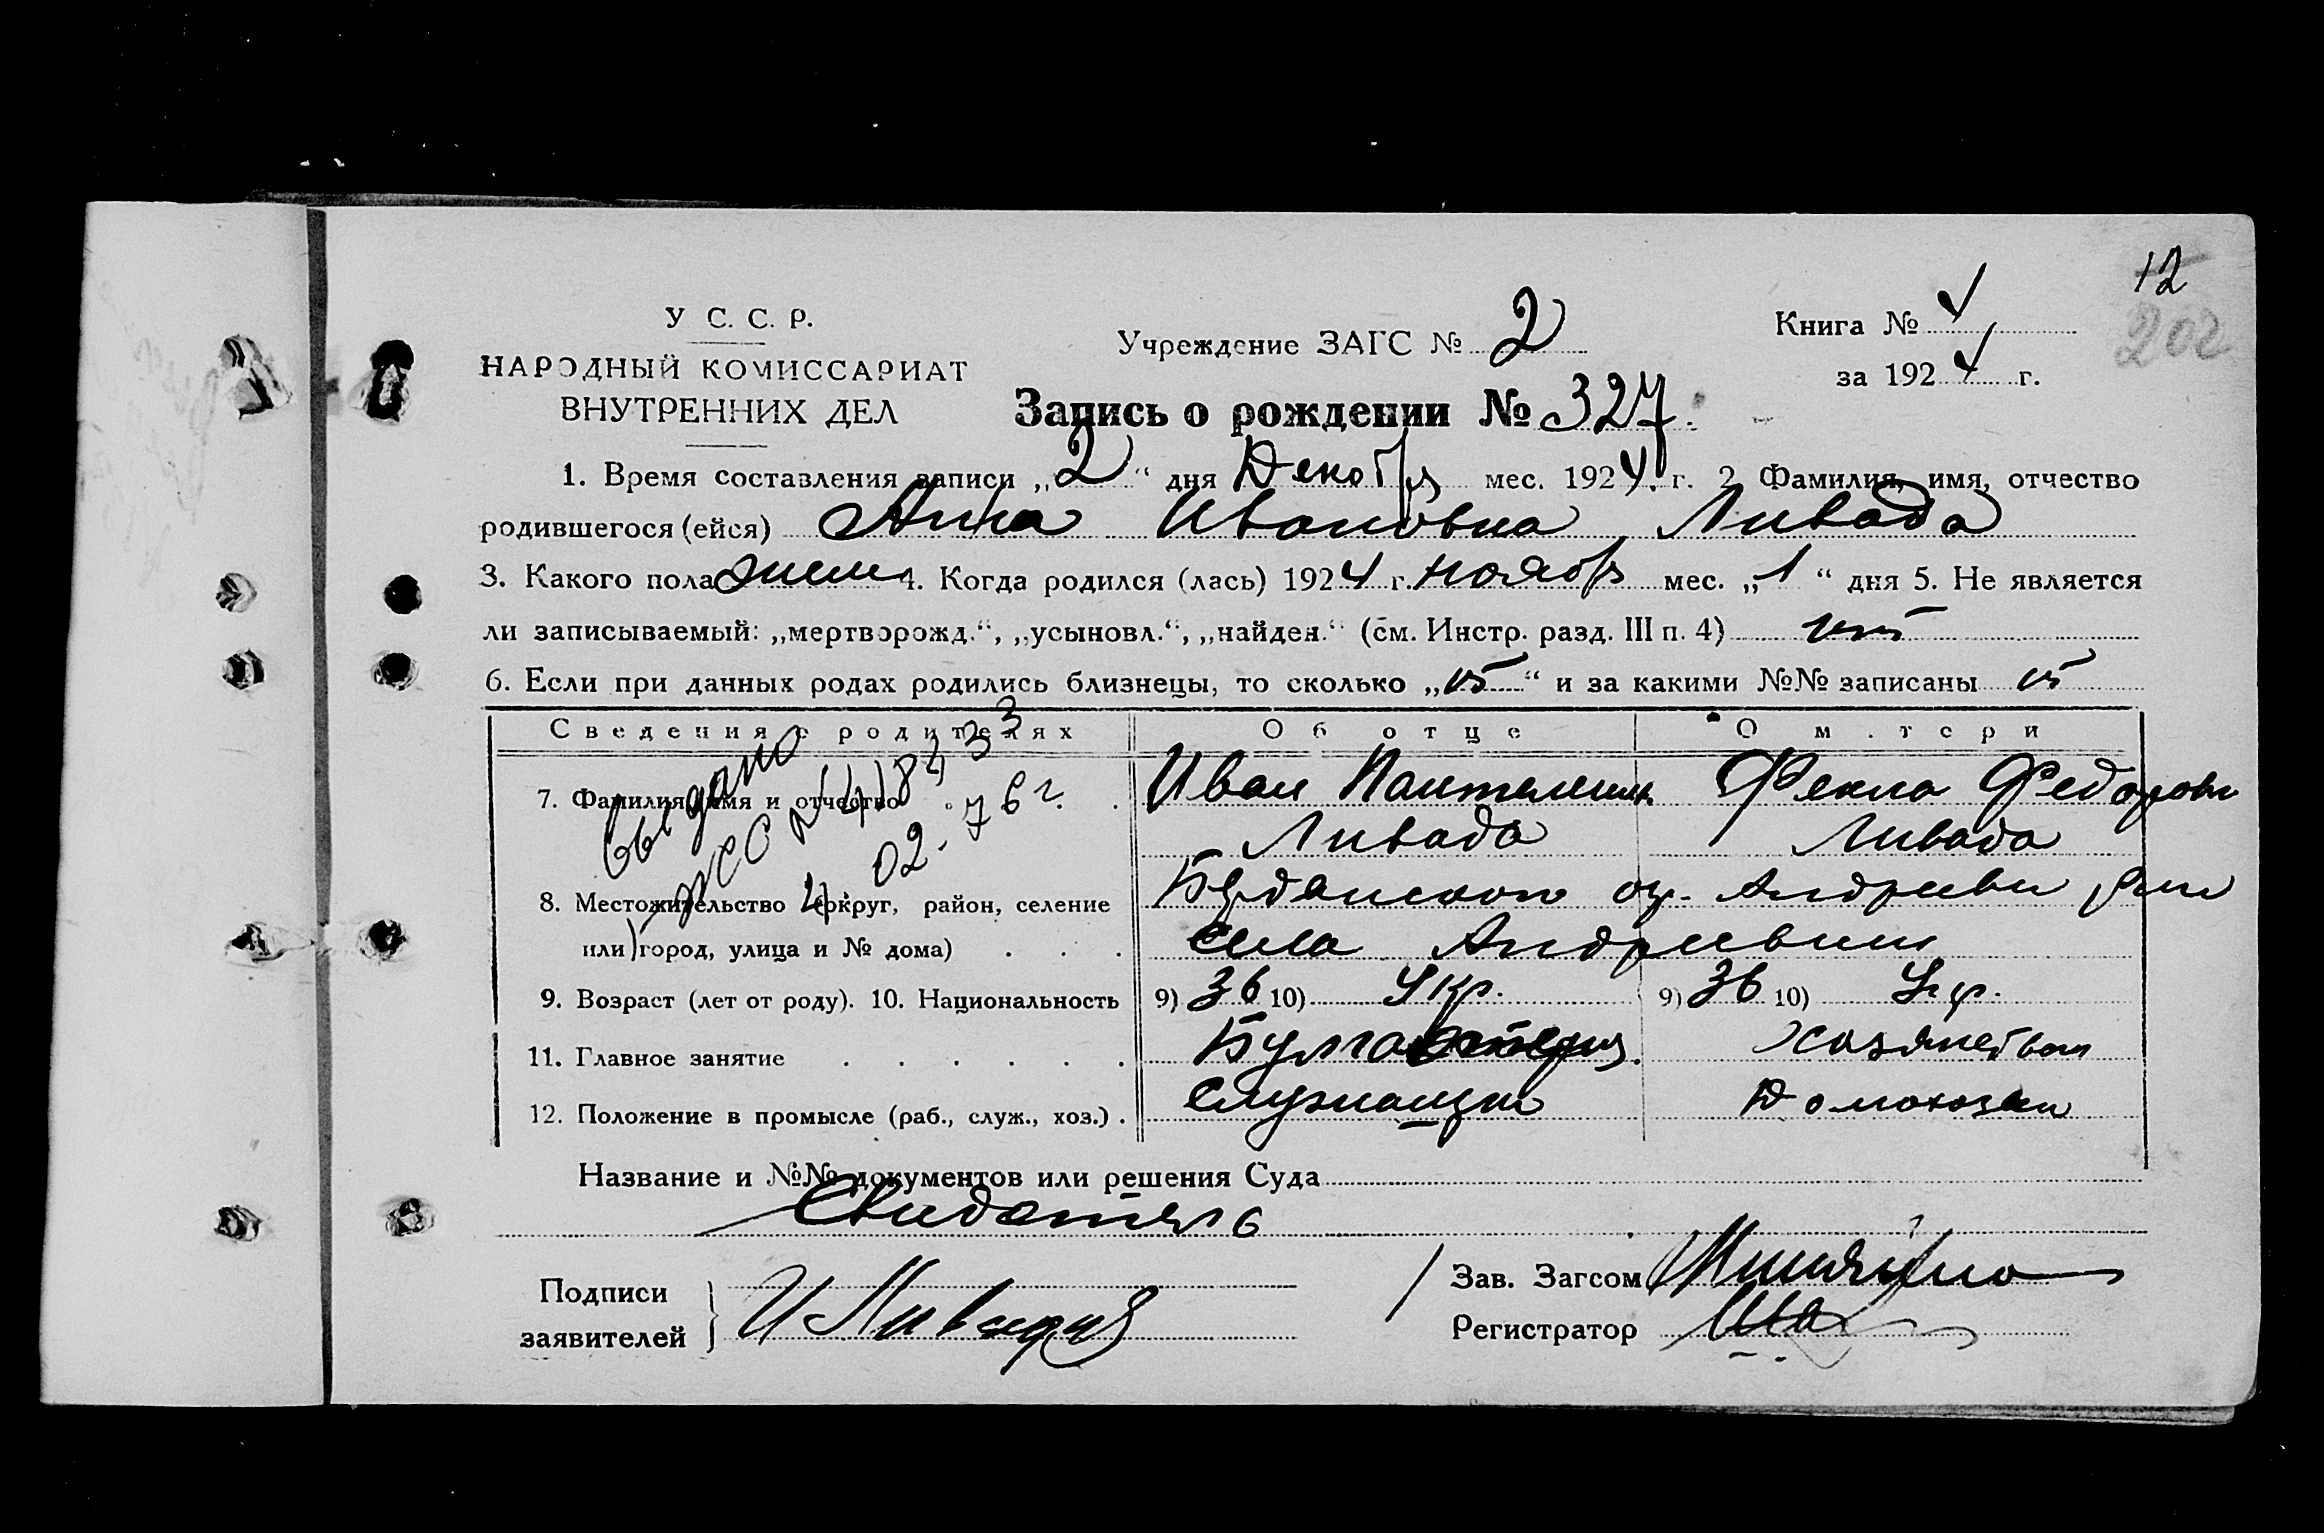 12
202
У С. С. Р.
НАРОДНЫЙ КОМИССАРИАТ
ВНУТРЕННИХ ДЕЛ
Учреждение ЗАГС № 2
Книга № 4
за 1924 г.
Запись о рождении № 327.
1. Время составления записи „2“ дня Декабр мес. 1924 г. 2 Фамилия, имя, отчество
родившегося (ейся) Анна Ивановна Ливада
3. Какого пола жен 4. Когда родился (лась) 1924 г. ноябр мес. „1“ дня 5. Не является
ли записываемый: „мертворожд.“, „усыновл.“, „найден.“ (см. Инстр. разд. III п. 4) нет
6. Если при данных родах родились близнецы, то сколько „ “ и за какими №№ записаны
Сведения о родителях Об отце О матери
7. Фамилия, имя и отчество Иван Пантелеим. Фекла Федоровн
Ливада Ливада
8. Местожительство (округ, район, селение Бердянского ок. Андреевск
или город, улица и № дома) села Андреевки
9. Возраст (лет от роду). 10. Национальность 9) 36 10) Укр. 9) 36 10) Укр.
11. Главное занятие Хозяйством
12. Положение в промысле (раб., служ., хоз.) Служащий Домохозяй
Выдано
4. 02-76 г.
Название и №№ документов или решения Суда
Свидетель
Подписи
заявителей И Ливада
Зав. Загсом
Регистратор